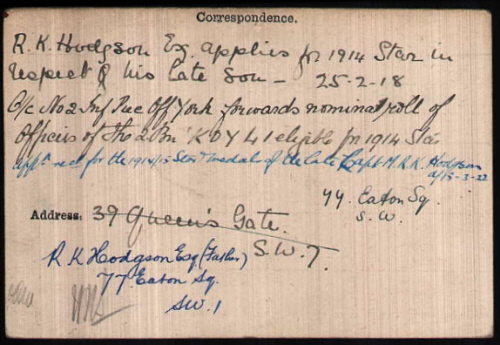 Correspondence.
R. K. Hodgson Esq. applies for 1914 Star in
respect of his late Son – 25-2-18
O/c No 2 Inf Rec Off York forwards nominal roll of
Officers of the 2 Bn K O Y L I eligible for 1914 Star
appn recd for the 1914/15 Star medal of the late Capt M. R. K. Hodgson
d/15-3-22
77. Eaton Sq.
S. W.
Address: 39 Queen's Gate.
S. W. 7.
R K Hodgson Esq (Father)
77 Eaton Sq.
SW. 1